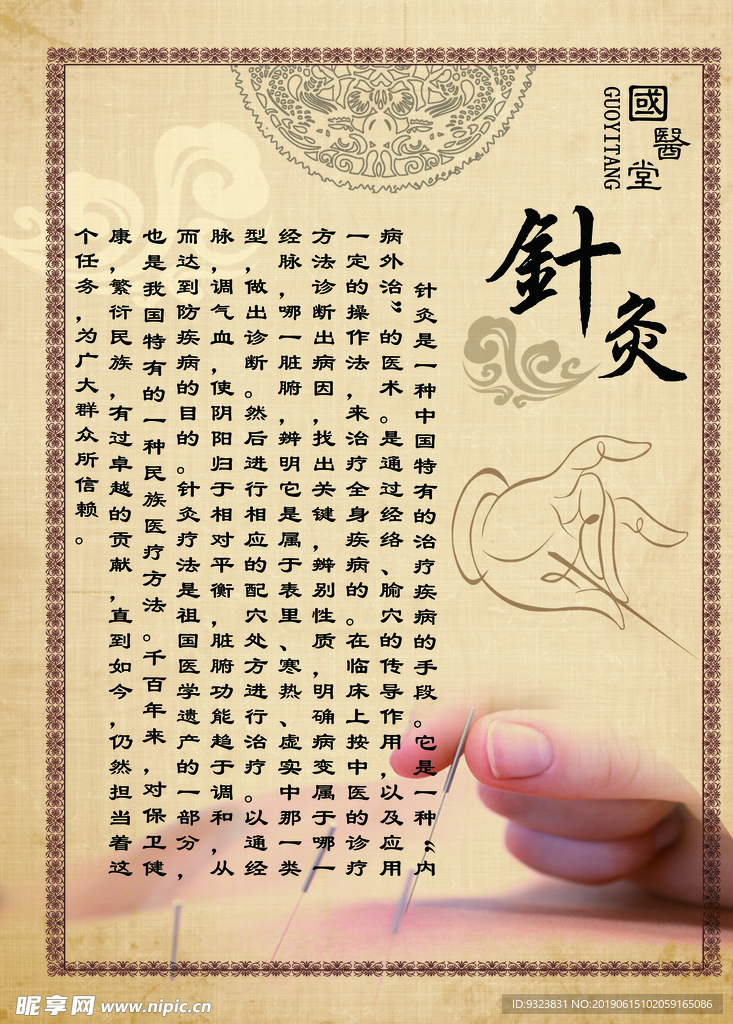 國醫堂
GUOYITANG
針灸
针灸是一种中国特有的治疗疾病的手段。它是一种“内
病外治”的医术。是通过经络、腧穴的传导作用，以及应用
一定的操作法，来治疗全身疾病的。在临床上按中医的诊疗
方法诊断出病因，找出关键，辨别性质，明确病变属于哪一
经脉，哪一脏腑，辨明它是属于表里、寒热、虚实中那一类
型，做出诊断。然后进行相应的配穴处方进行治疗。以通经
脉，调气血，使阴阳归于相对平衡，脏腑功能趋于调和，从
而达到防疾病的目的。针灸疗法是祖国医学遗产的一部分，
也是我国特有的一种民族医疗方法。千百年来，对保卫健
康，繁衍民族，有过卓越的贡献，直到如今，仍然担当着这
个任务，为广大群众所信赖。
昵享网 www.nipic.cn
ID:9323831 NO:20190615102059165086